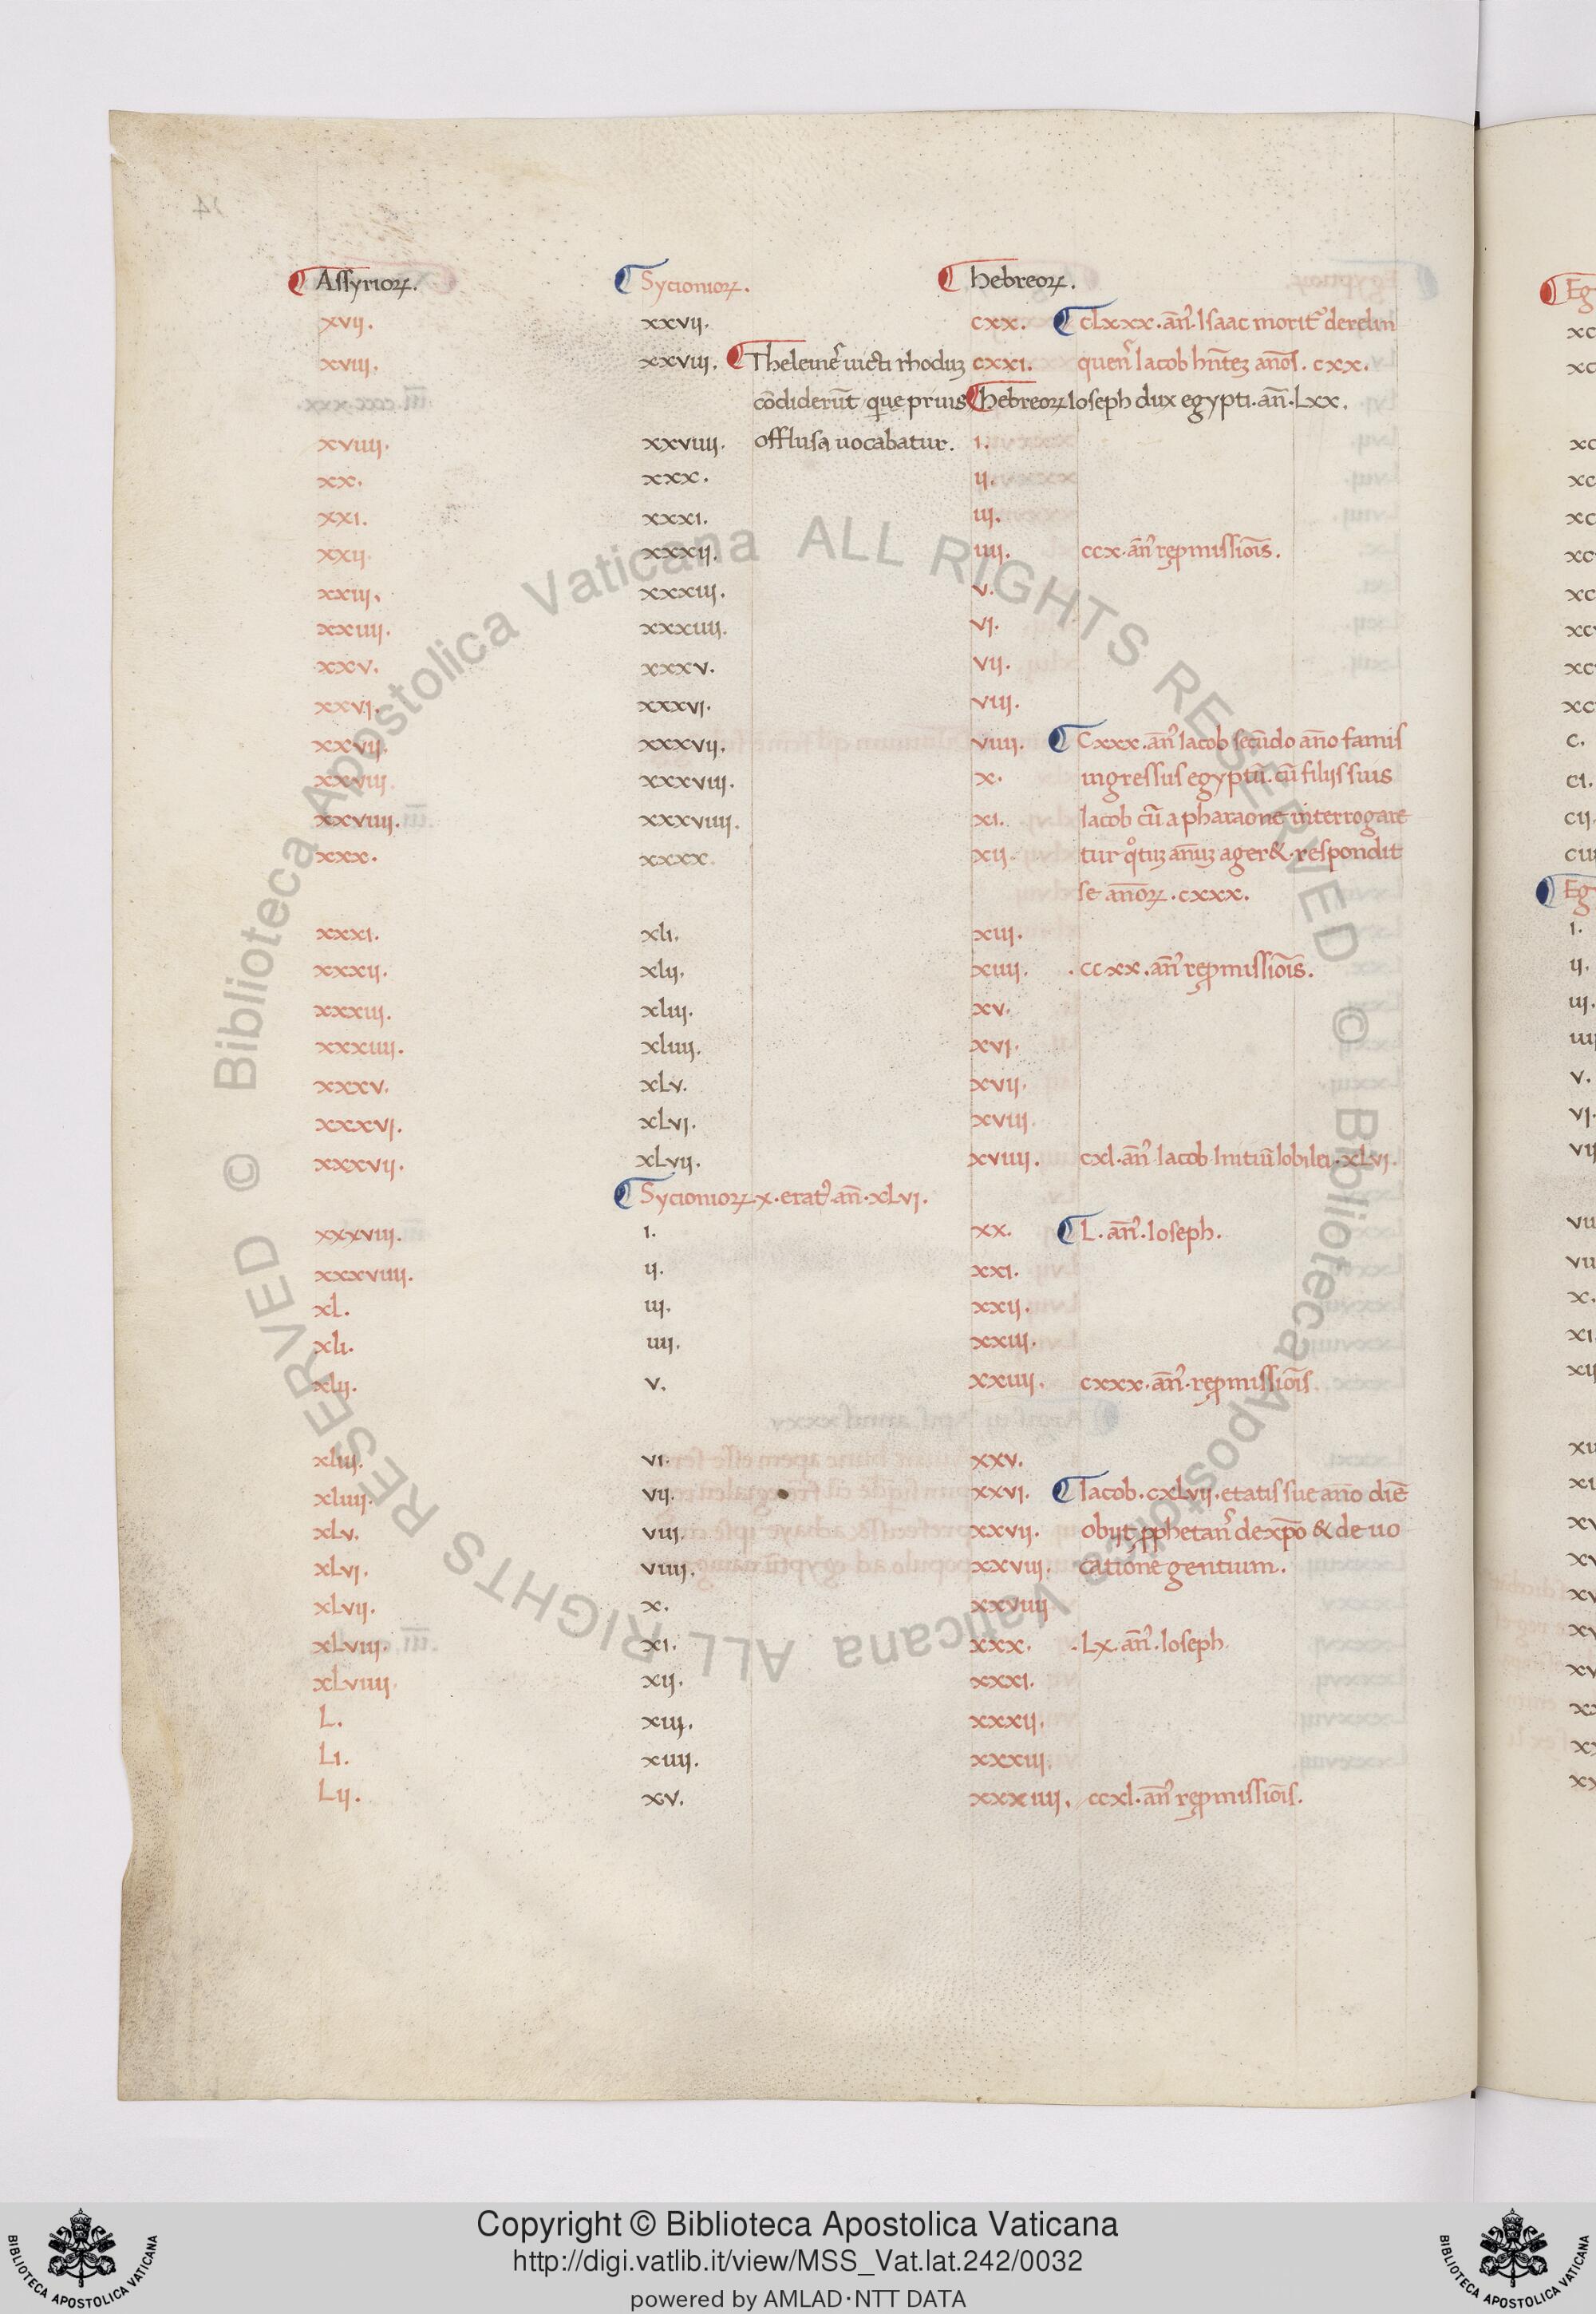 Assyrioꝝ. Sycionioꝝ. hebreoꝝ.
xvij. xxvij. cxx. clxxx. an̄. Isaac morit᷑ derelin
xviij. xxviij. Theleiner̄ uicti rhoduȝ cxxi. quens Iacob hn̄teȝ an̄os. cxx.
cōdiderūt que prius hebreoꝝ Ioseph dux egypti. an̄. Lxx.
xviiij. xxviiij. offiusa uocabatur. i.
xx. xxx. ij.
xxi. xxxi. iij.
xxij. xxxij. iiij. ccx. an̄ rep̱missiōis.
xxiij. xxxiij. v.
xxiiij. xxxiiij. vi.
xxv. xxxv. vij.
xxvi. xxxvi. viij.
xxvij. xxxvij. viiij. Cxxx. an̄ Iacob secūdo an̄o famis
xxviij. xxxviij. x. ingressus egyptū. cū filijs suis
xxviiij. xxxviiij. xi. Iacob cū a pharaone interrogare
xxx. xxxx. xij. tur qͦtuȝ an̄uȝ ager&. respondit
se an̄oꝝ. cxxx.
xxxi. xli. xiij.
xxxij. xlij. xiiij. ccxx. an̄ rep̱missiōis.
xxxiij. xliij. xv.
xxxiiij. xliiij. xvi.
xxxv. xLv. xvij.
xxxvi. xLvi. xviij.
xxxvij. xLvij. xviiij. cxl. an̄ Iacob Initiū Iobilei. xLvi.
Sycionioꝝ. x. erat᷑. an̄. xLvi.
xxxviij. i. xx. L. an̄. Ioseph.
xxxviiij. ij. xxi.
xL. iij. xxij.
xli. iiij. xxiij.
xlij. v. xxiiij. cxxx. an̄. rep̱missiōis
xliij. vi. xxv.
xliiij. vij. xxvi. Iacob. cxLvij. etatis sue an̄o diē
xLv. viij. xxvij. obijt p̱phetans de xp̄o & de uo
xLvi. viiij. xxviij. catione gentium.
xLvij. x. xxviiij
xLviij. xi. xxx. Lx. an̄. Ioseph.
xLviiij. xij. xxxi.
L. xiij. xxxij.
Li. xiiij. xxxiij.
Lij. xv. xxxiiij. ccxl. an̄ rep̱missiōis.
© Biblioteca Apostolica Vaticana ALL RIGHTS RESERVED © Biblioteca Apostolica Vaticana ALL RIGHTS RESERVED
Copyright © Biblioteca Apostolica Vaticana
http://digi.vatlib.it/view/MSS_Vat.lat.242/0032
powered by AMLAD·NTT DATA
BIBLIOTECA APOSTOLICA VATICANA
BIBLIOTECA APOSTOLICA VATICANA